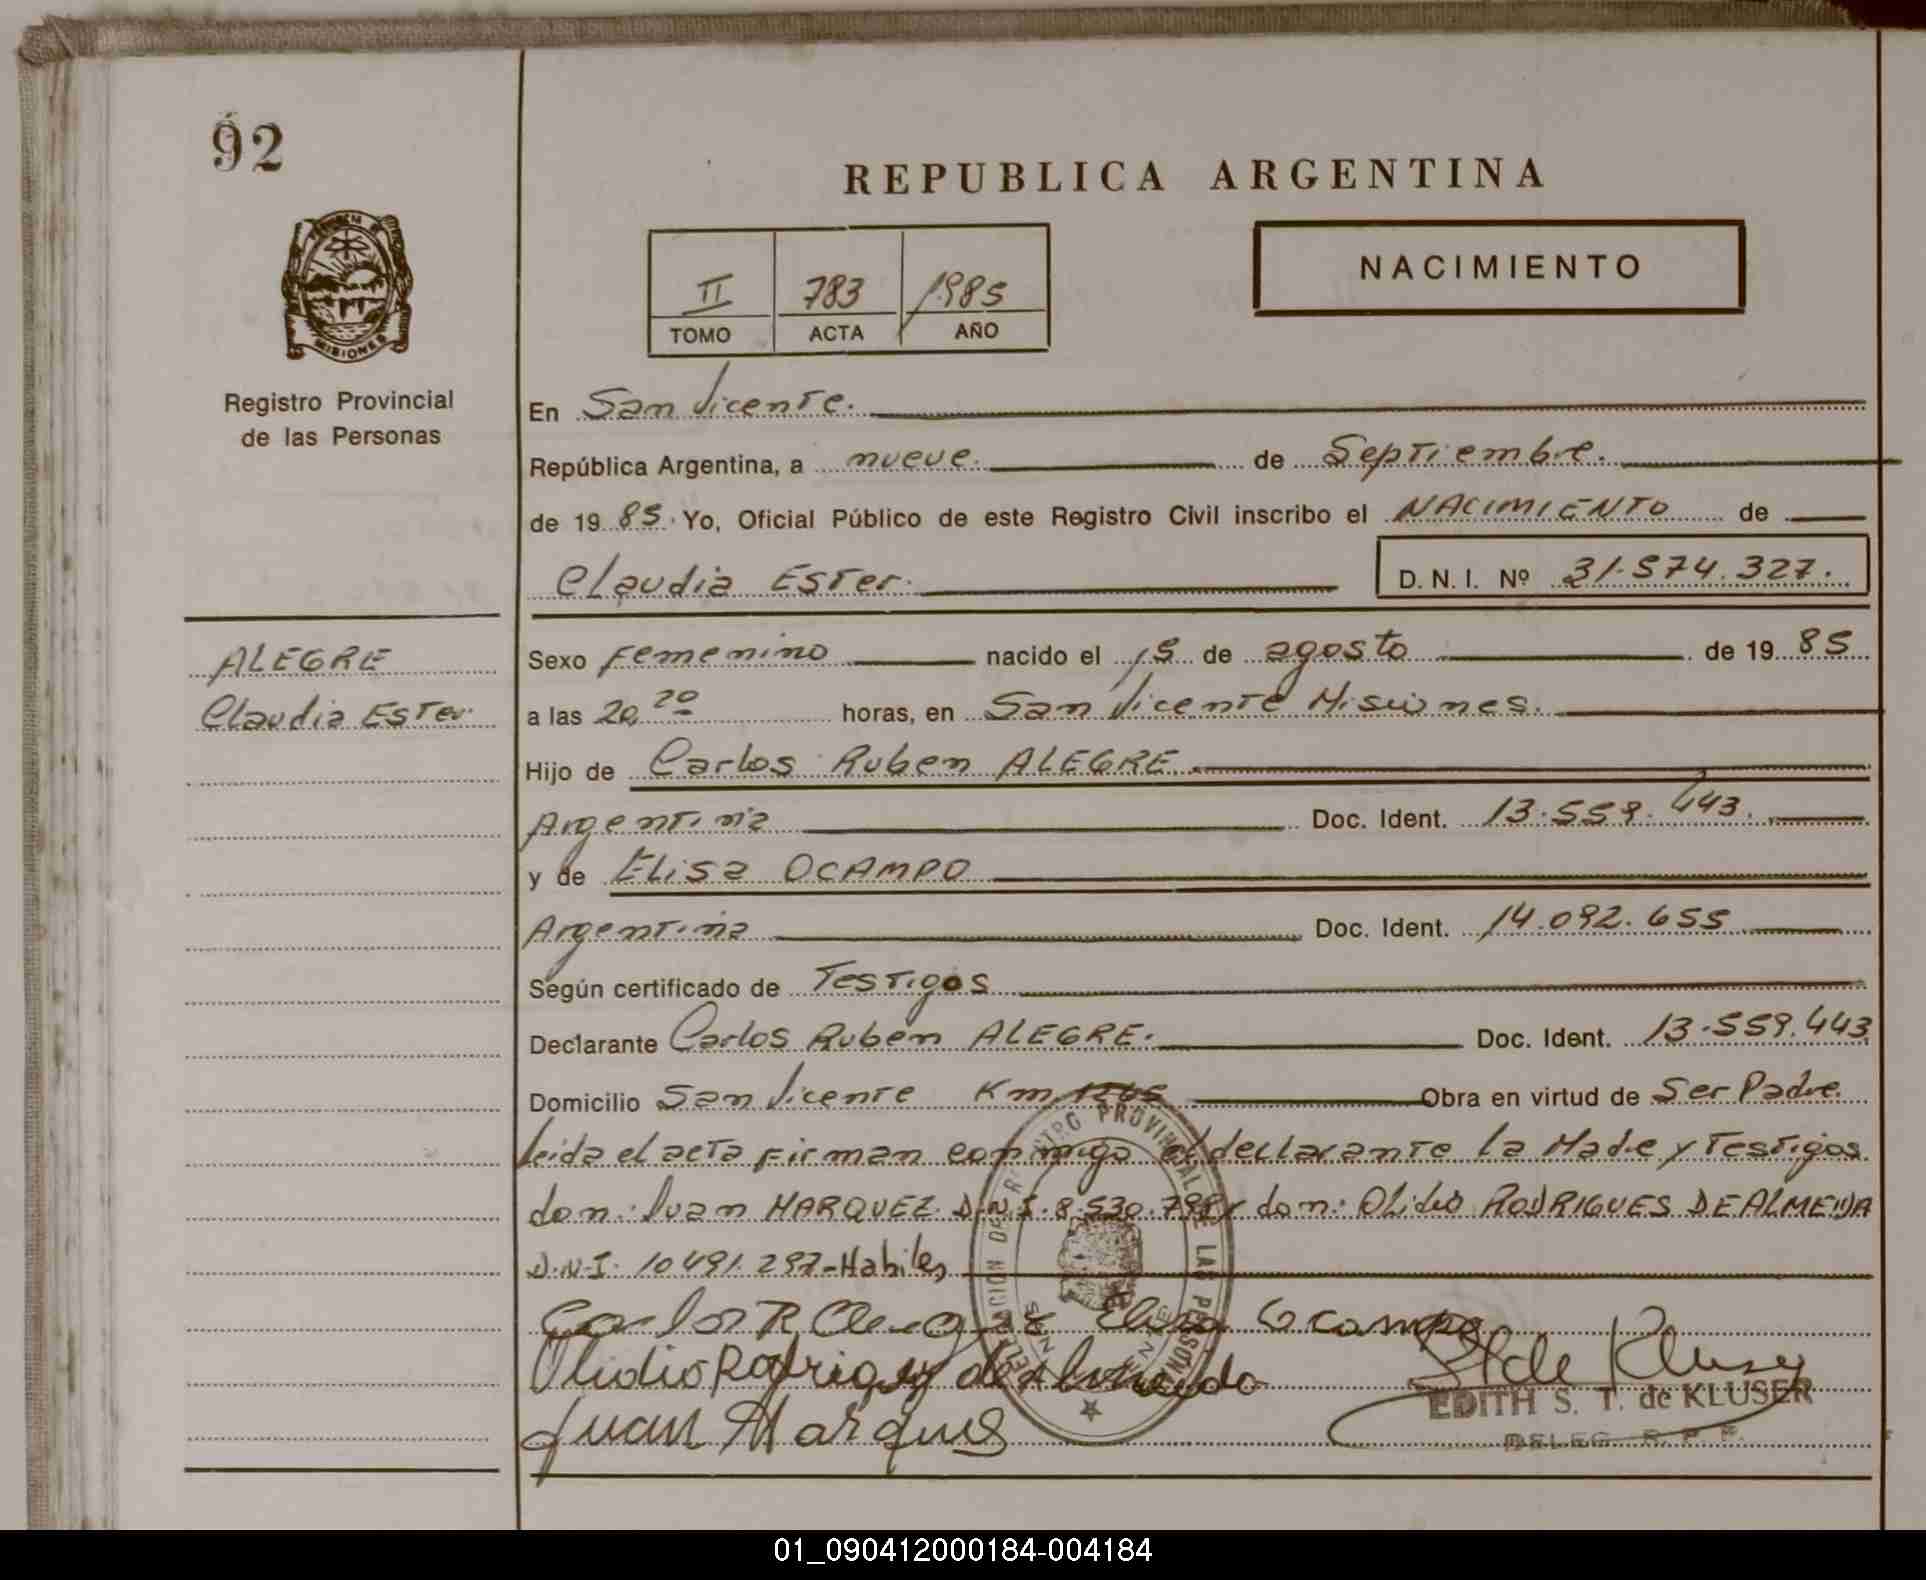 92
REPUBLICA ARGENTINA
NACIMIENTO
II 783 1985
TOMO ACTA AÑO
MISIONES
Registro Provincial
de las Personas
En San Vicente.
República Argentina, a nueve. de Septiembre.
de 19 85. Yo, Oficial Público de este Registro Civil inscribo el NACIMIENTO de
Claudia Ester. D. N. I. Nº 31.574.327.
ALEGRE
Claudia Ester.
Sexo Femenino nacido el 15 de agosto de 19 85
a las 20,20 horas, en San Vicente Misiones.
Hijo de Carlos Ruben ALEGRE.
Argentina Doc. Ident. 13.559.443.
y de Elisa OCAMPO
Argentina Doc. Ident. 14.092.655
Según certificado de Testigos
Declarante Carlos Ruben ALEGRE. Doc. Ident. 13.559.443
Domicilio San Vicente Km 1265 Obra en virtud de Ser Padre.
Leida el acta firman conmigo el declarante la Madre y Testigos
don: Juan MARQUEZ. D.N.I. 8.530.798 y don: Olidio RODRIGUES DE ALMEIDA
D.N.I. 10491.297-Habiles
Carlos R Alegre Elisa Ocampo
Olidio Rodrigues de Almeida
Juan Marques
EDITH S. T. de KLUSER
DELEG. R. P. P.
01_090412000184-004184